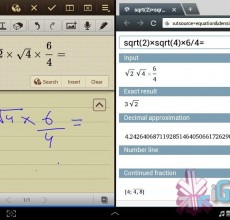 √2 × √4 × 6/4 =
Search
Insert
√4 × 6/4 =
1/1
sqrt(2)×sqr...
outsource=equation&densi
sqrt(2)×sqrt(4)×6/4=
Input
√2 √4 × 6/4
Exact result
3√2
Decimal approximation
4.2426406871192851464050661726290
Number line
Continued fraction
[4; 4, 8]